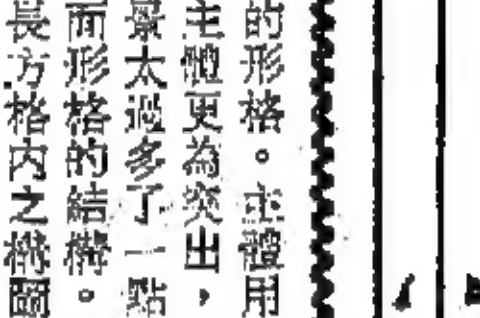 的形格。主體用
主體更為突出，
景太過多了一點
而形格的結構。
長方格內之構圖